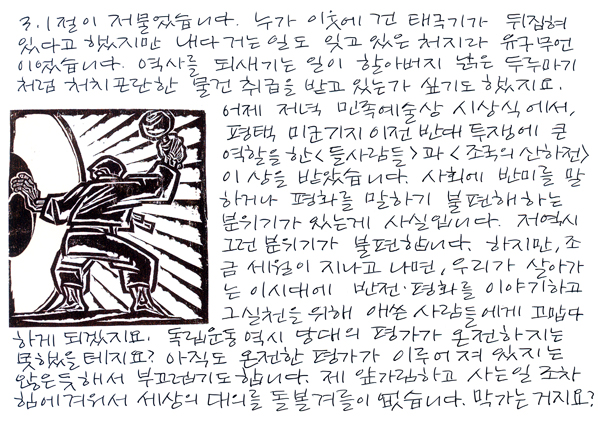 3.1절이 저물었습니다. 누가 이웃에 건 태극기가 뒤집혀
있다고 했지만 내다 거는 일도 잊고 있은 처지라 유구무언
이었습니다. 역사를 되새기는 일이 할아버지 낡은 두루마기
처럼 처치곤란한 물건 취급을 받고 있는가 싶기도 했지요.
어제 저녁 민족예술상 시상식에서,
평택 미군기지 이전 반대 투쟁에 큰
역할을 한 <들사람들>과 <조국의 산하전>
이 상을 받았습니다. 사회에 반미를 말
하거나 평화를 말하기 불편해하는
분위기가 있는게 사실입니다. 저역시
그런 분위기가 불편합니다. 하지만, 조
금 세월이 지나고 나면, 우리가 살아가
는 이시대에 반전·평화를 이야기하고
그실천을 위해 애쓴 사람들에게 고맙다
하게 되겠지요. 독립운동 역시 당대의 평가가 온전하지는
못했을 테지요? 아직도 온전한 평가가 이루어져 있지는
않은듯해서 부끄럽기도 합니다. 제 앞가림하고 사는일 조차
힘에겨워서 세상의 대의를 돌볼겨를이 없습니다. 막가는거지요?